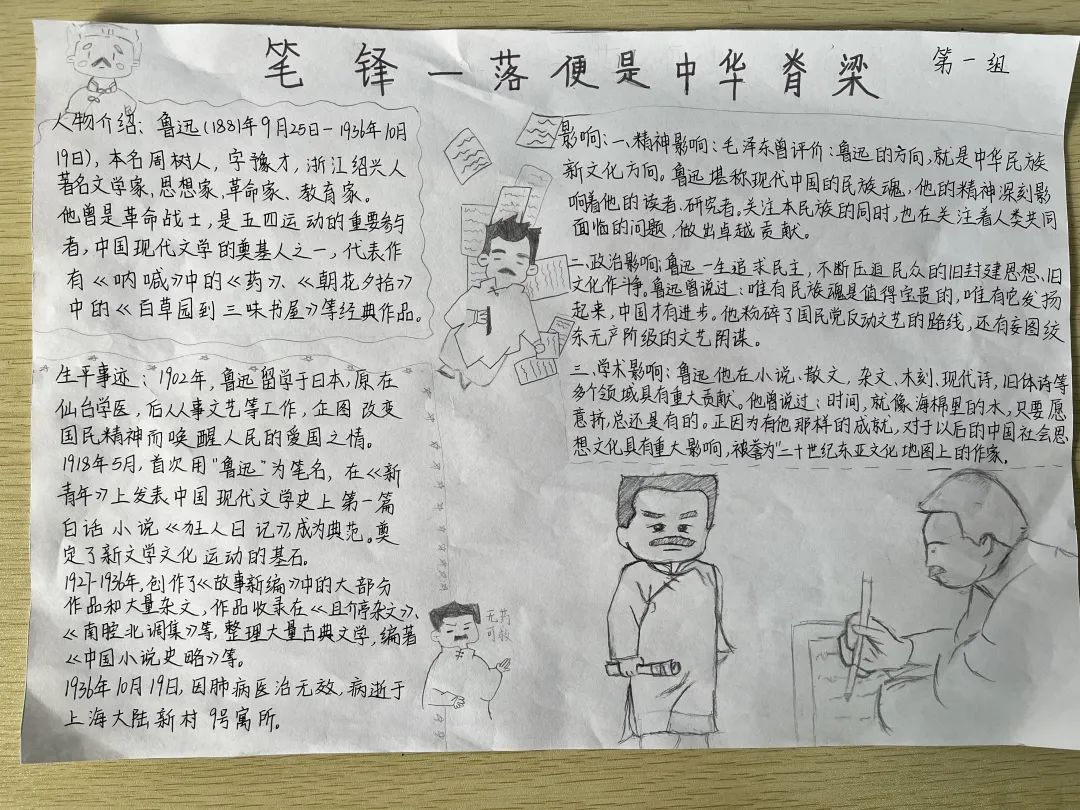 笔锋一落便是中华脊梁
第一组
人物介绍：鲁迅（1881年9月25日-1936年10月
19日），本名周树人，字豫才，浙江绍兴人
著名文学家、思想家、革命家、教育家。
他曾是革命战士，是五四运动的重要参与
者，中国现代文学的奠基人之一，代表作
有《呐喊》中的《药》、《朝花夕拾》
中的《百草园到三味书屋》等经典作品。
生平事迹：1902年，鲁迅留学于日本，原在
仙台学医，后从事文艺等工作，企图改变
国民精神而唤醒人民的爱国之情。
1918年5月，首次用“鲁迅”为笔名，在《新
青年》上发表中国现代文学史上第一篇
白话小说《狂人日记》，成为典范。奠
定了新文学文化运动的基石。
1927-1936年，创作了《故事新编》中的大部分
作品和大量杂文，作品收录在《且介亭杂文》、
《南腔北调集》等，整理大量古典文学，编著
《中国小说史略》等。
1936年10月19日，因肺病医治无效，病逝于
上海大陆新村9号寓所。
无药
可救
影响：一、精神影响：毛泽东曾评价：鲁迅的方向，就是中华民族
新文化方向。鲁迅堪称现代中国的民族魂，他的精神深刻影
响着他的读者、研究者。关注本民族的同时，也在关注着人类共同
面临的问题，做出卓越贡献。
二、政治影响：鲁迅一生追求民主，不断压迫民众的旧封建思想、旧
文化作斗争。鲁迅曾说过：唯有民族魂是值得宝贵的，唯有它发扬
起来，中国才有进步。他粉碎了国民党反动文艺的路线，还有妄图绞
杀无产阶级的文艺阴谋。
三、学术影响：鲁迅他在小说、散文，杂文、木刻、现代诗，旧体诗等
多个领域具有重大贡献。他曾说过：时间，就像海棉里的水，只要愿
意挤，总还是有的。正因为有他那样的成就，对于以后的中国社会思
想文化具有重大影响，被誉为“二十世纪东亚文化地图上的作家。